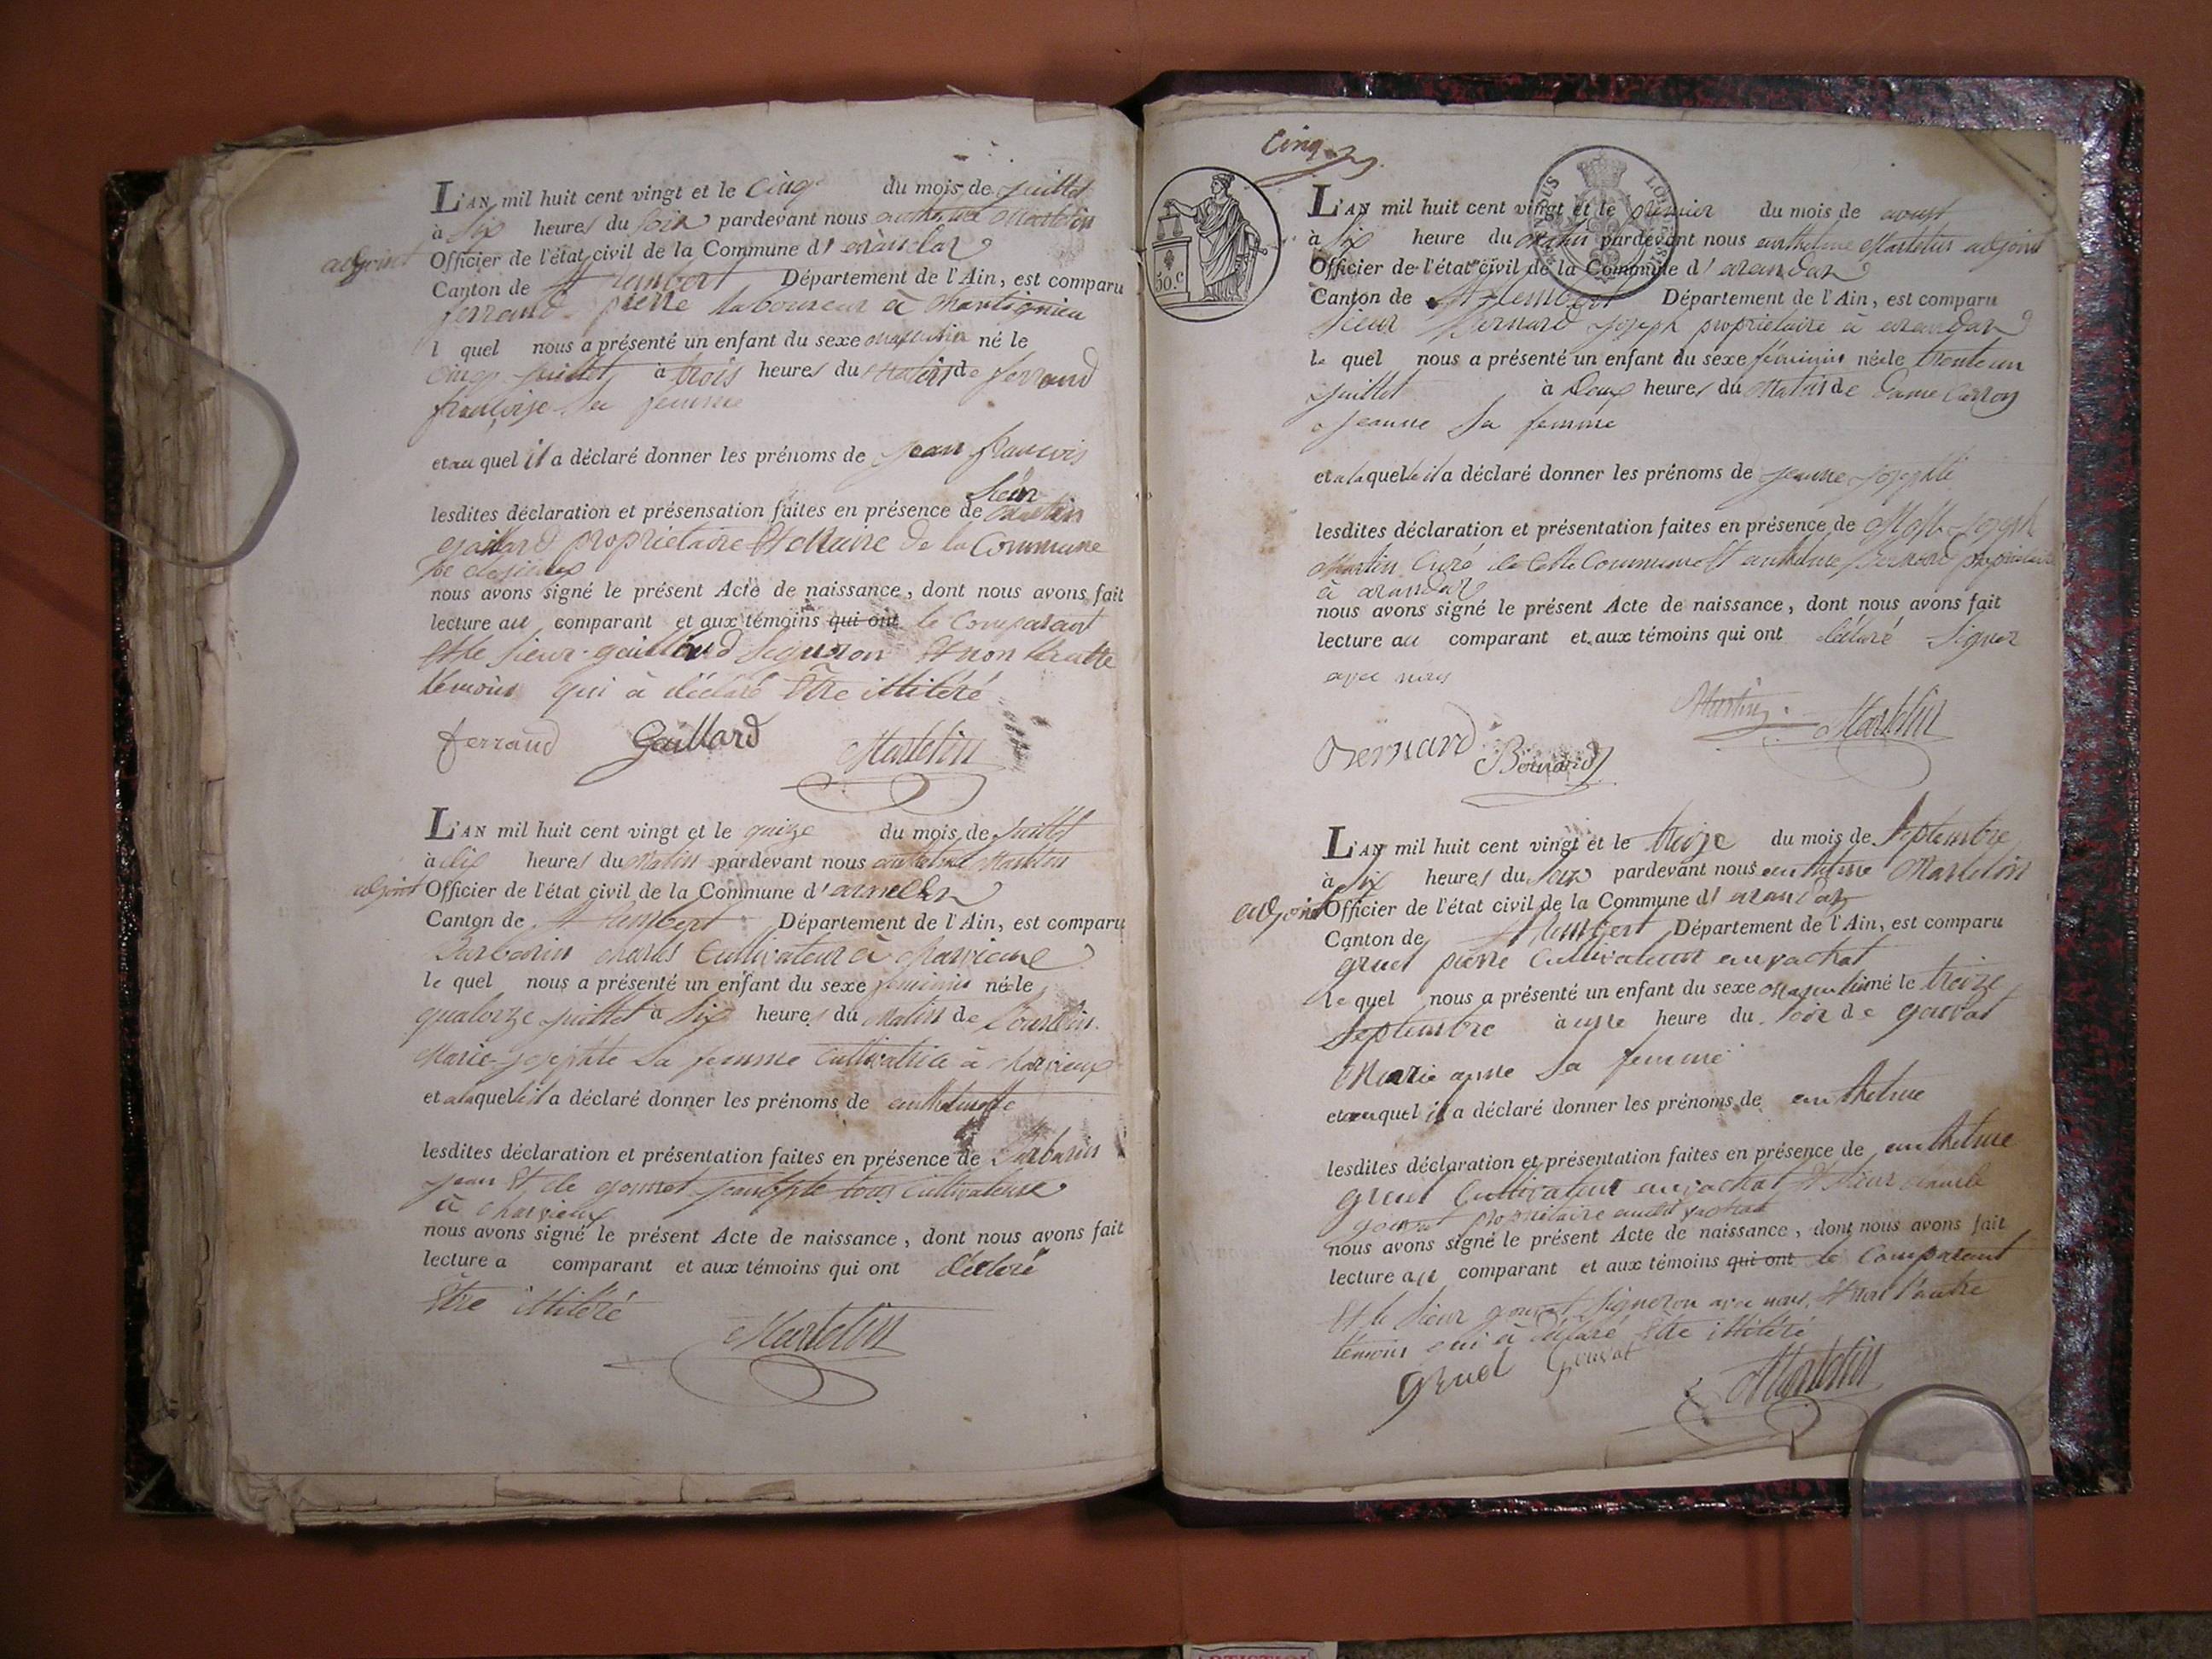 L'AN mil huit cent vingt et le Cinq du mois de juillet
à Six heures du Soir pardevant nous anthelme Martelin
adjoint Officier de l'état civil de la Commune d'arandas
Canton de St Rambert Département de l'Ain, est comparu
ferrand pierre laboureur à
l quel nous a présenté un enfant du sexe masculin né le
Cinq juillet à trois heures du Matin de ferrand
françoise Sa femme
et au quel il a déclaré donner les prénoms de jean françois
Sieur
lesdites déclaration et présensation faites en présence de
gaillard propriétaire Et Maire de la Commune
de
nous avons signé le présent Acte de naissance, dont nous avons fait
lecture au comparant et aux témoins qui ont le Comparant
Et le Sieur gaillard Signeron Et non l'autre
témoins qui à déclaré Être illitéré
ferrand Gaillard Martelin
L'AN mil huit cent vingt et le quinze du mois de juillet
à dix heures du Matin pardevant nous anthelme Martelin
adjoint Officier de l'état civil de la Commune d'arandas
Canton de St Rambert Département de l'Ain, est comparu
Barbarin charles Cultivateur à
le quel nous a présenté un enfant du sexe féminin née le
quatorze juillet à Six heures du Matin de
Marie josephte Sa femme Cultivatrice à
et a laquelle il a déclaré donner les prénoms de anthelmette
lesdites déclaration et présentation faites en présence de Barbarin
jean Et de jean bpte tous Cultivateurs
à
nous avons signé le présent Acte de naissance, dont nous avons fait
lecture a comparant et aux témoins qui ont déclaré
Être illitéré
Martelin
Cinq
50.C
L'AN mil huit cent vingt et le premier du mois de aoust
à Six heure du Matin pardevant nous anthelme Martelin adjoint
Officier de l'état civil de la Commune d'arandas
Canton de St Rambert Département de l'Ain, est comparu
Sieur Bernard joseph propriétaire à arandas
le quel nous a présenté un enfant du sexe féminin née le trente un
juillet à Deux heures du Matin de Dame Carron
jeanne Sa femme
et a la quelle il a déclaré donner les prénoms de jeanne josephte
lesdites déclaration et présentation faites en présence de joseph
Martin Curé de Cette Commune Et anthelme Bernard propriétaire
à arandas
nous avons signé le présent Acte de naissance, dont nous avons fait
lecture au comparant et aux témoins qui ont déclaré Signer
avec nous
Martin Martelin
Bernard Bernard
L'AN mil huit cent vingt et le treize du mois de Septembre
à Six heures du Soir pardevant nous anthelme Martelin
adjoint Officier de l'état civil de la Commune d'arandas
Canton de St Rambert Département de l'Ain, est comparu
gruel pierre Cultivateur au vachat
le quel nous a présenté un enfant du sexe Masculin né le treize
Septembre à une heure du Soir de gouvat
Marie anne Sa femme
et au quel il a déclaré donner les prénoms de anthelme
lesdites déclaration et présentation faites en présence de anthelme
gruel Cultivateur au vachat Et Sieur Claude
gouvat propriétaire audit vachat
nous avons signé le présent Acte de naissance, dont nous avons fait
lecture au comparant et aux témoins qui ont le Comparant
Et le Sieur gouvat Signeron avec nous, Et non l'autre
témoin qui à déclaré Être illitéré
Gruel Gouvat Martelin